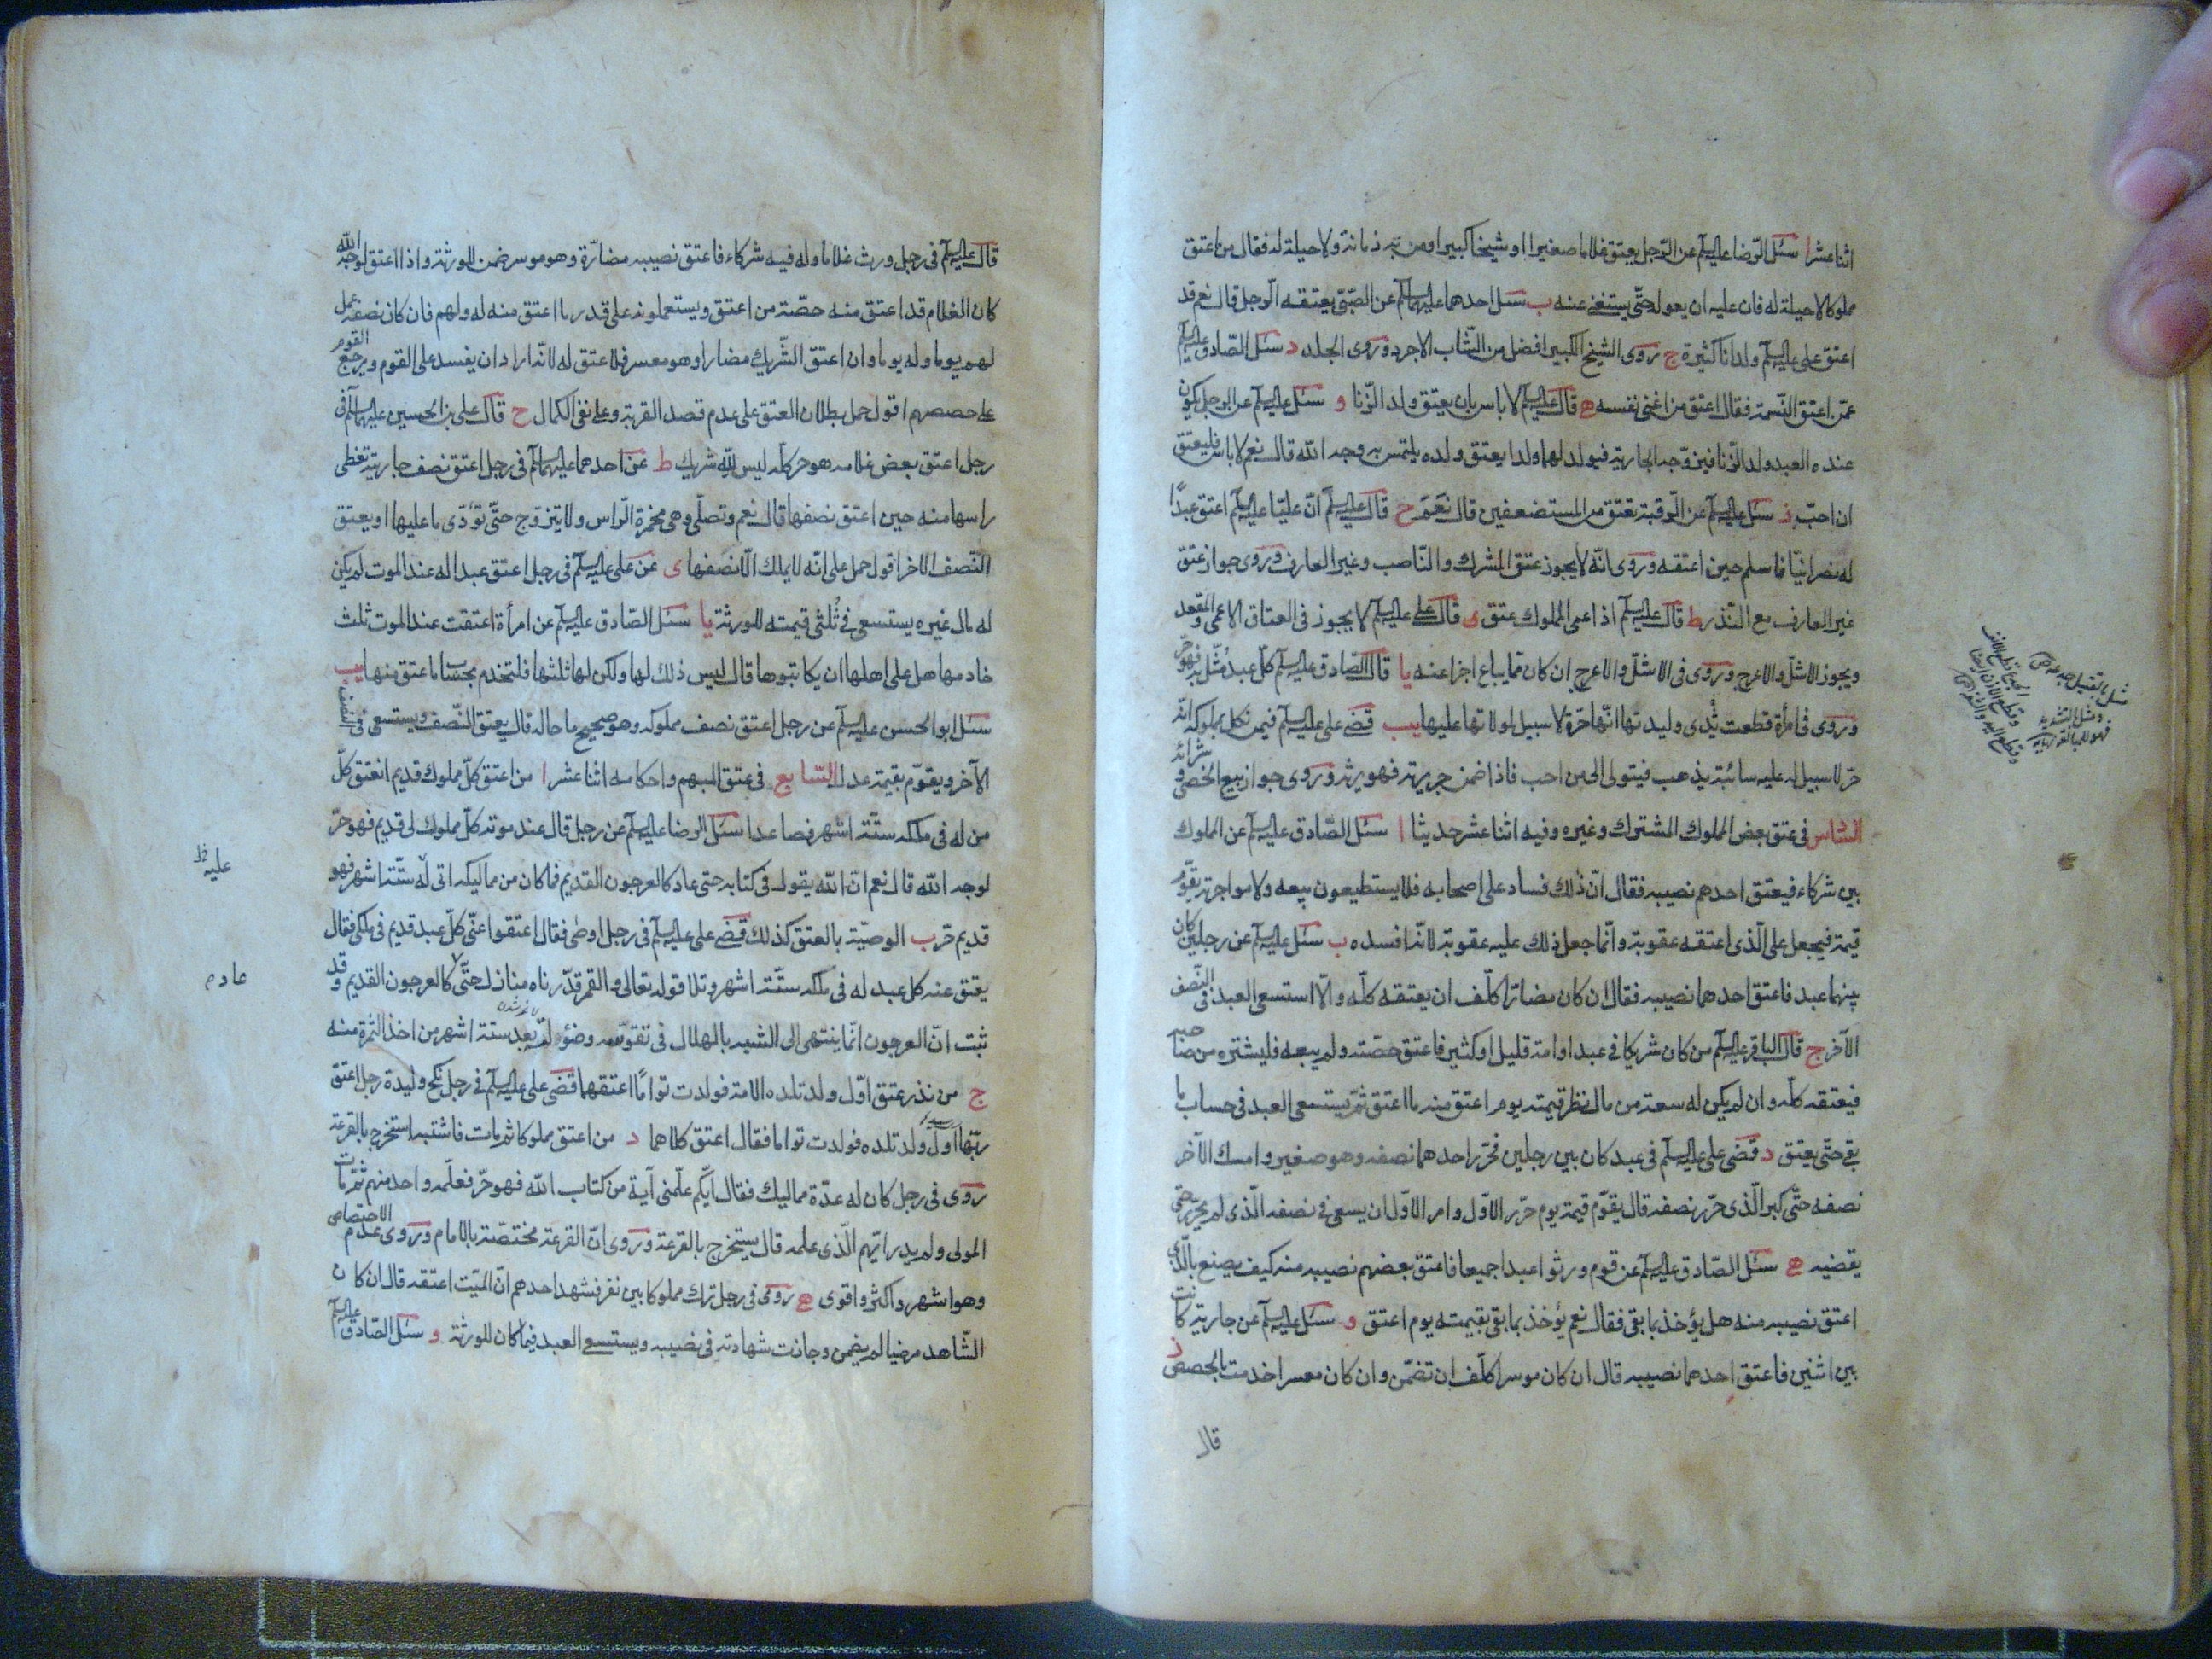 اثنا عشر ا سئل الرضا عليه السلم عن الرجل يعتق غلاما صغيرا او شيخا كبيرا او من به زمانة ولا حيلة له فقال من اعتق
مملوكا لا حيلة له فان عليه ان يعوله حتى يستغنى عنه ب سئل احدهما عليهما السلم عن الصبى يعتقه الرجل قال نعم قد
اعتق على عليه السلم ولدانا كثيرة ج روى الشيخ الكبير افضل من الشاب الاجرد وروى الجلد د سئل الصادق عليه السلم
عمن اعتق النسمة فقال اعتق من اغنى نفسه ه قال عليه السلم لا باس بان يعتق ولد الزنا و سئل عليه السلم عن الرجل يكون
عنده العبد ولد الزنا فيزوجه الجارية فيولد لهما ولد ايعتق ولده يلتمس به وجه الله قال نعم لا باس فليعتق
ان احب ز سئل عليه السلم عن الرقبة تعتق من المستضعفين قال نعم ح قال عليه السلم ان عليا عليه السلم اعتق عبدا
له نصرانيا فاسلم حين اعتقه وروى انه لا يجوز عتق المشرك والناصب وغير العارف وروى جواز عتق
غير العارف مع النذر ط قال عليه السلم اذا عمى المملوك عتق ى قال على عليه السلم لا يجوز فى العتاق الاعمى والمقعد
ويجوز الاشل والاعرج وروى فى الاشل والاعرج ان كان مما يباع اجزا عنه يا قال الصادق عليه السلم كل عبد مثل به فهو حر
وروى فى امرأة قطعت ثدى وليدتها انها حرة لا سبيل لمولاتها عليها يب قضى على عليه السلم فيمن نكل بمملوكه انه
حر لا سبيل له عليه سائبة يذهب فيتولى الى من احب فاذا ضمن جريرته فهو يرثه وروى جواز بيع الخصى و شرائه
السادس فى عتق بعض المملوك المشترك وغيره وفيه اثنا عشر حديثا ا سئل الصادق عليه السلم عن المملوك
بين شركاء فيعتق احدهم نصيبه فقال ان ذلك فساد على اصحابه فلا يستطيعون بيعه ولا مواجرته يقوم
قيمة فيجعل على الذى اعتقه عقوبة وانما جعل ذلك عليه عقوبة لانه افسده ب سئل عليه السلم عن رجلين كان
بينهما عبد فاعتق احدهما نصيبه فقال ان كان مضارا كلف ان يعتقه كله والا استسعى العبد فى النصف
الآخر ج قال الباقر عليه السلم من كان شريكا فى عبد او امة قليل او كثير فاعتق حصته ولم يبعه فليشتره من صاحبه
فيعتقه كله وان لم يكن له سعة من مال نظر قيمته يوم اعتق منه ما اعتق ثم يستسعى العبد فى حساب ما
بقى حتى يعتق د قضى على عليه السلم فى عبد كان بين رجلين فحرر احدهما نصفه وهو صغير وامسك الآخر
نصفه حتى كبر الذى حرر نصفه قال يقوم قيمة يوم حرر الاول وامر الاول ان يسعى فى نصفه الذى لم يحرر حتى
يقضيه ه سئل الصادق عليه السلم عن قوم ورثوا عبدا جميعا فاعتق بعضهم نصيبه منه كيف يصنع بالذى
اعتق نصيبه منه هل يؤخذ بما بقى فقال نعم يؤخذ بما بقى بقيمته يوم اعتق و سئل عليه السلم عن جارية كانت
بين اثنين فاعتق احدهما نصيبه قال ان كان موسرا كلف ان تضمن وان كان معسرا خدمت بالحصص ز
قال
قال عليه السلم فى رجل ورث غلاما وله فيه شركاء فاعتق نصيبه مضارة وهو موسر ضمن للورثة واذا اعتق لوجه الله
كان الغلام قد اعتق منه حصة من اعتق ويستعملونه على قدر ما اعتق منه له ولهم فان كان نصفه عمل
لهم يوما وله يوما وان اعتق الشريك مضارا وهو معسر فلا عتق له لانه اراد ان يفسد على القوم ويرجع القوم
على حصصهم اقول حمل بطلان العتق على عدم قصد القربة وعلى نفى الكمال ح قال على بن الحسين عليهما السلم فى
رجل اعتق بعض غلامه هو حر كله ليس لله شريك ط عن احدهما عليهما السلم فى رجل اعتق نصف جاريته تغطى
راسها منه حين اعتق نصفها قال نعم وتصلى وهى مخمرة الراس ولا يتزوج حتى تؤدى ما عليها او يعتق
النصف الاخر اقول حمل على انه لا يملك الا نصفها ى عن على عليه السلم فى رجل اعتق عبدا له عند الموت لم يكن
له مال غيره يستسعى فى ثلثى قيمته للورثة يا سئل الصادق عليه السلم عن امرأة اعتقت عند الموت ثلث
خادمها هل على اهلها ان يكاتبوها قال ليس ذلك لها ولكن لها ثلثها فلتخدم بحساب ما عتق منها يب
سئل ابو الحسن عليه السلم عن رجل اعتق نصف مملوكه وهو صحيح ما حاله قال يعتق النصف ويستسعى فى النصف
الآخر ويقوم بقيمة عدل السابع فى عتق المبهم واحكامه اثنا عشر ا من اعتق كل مملوك قديم انعتق كل
من له فى ملكه ستة اشهر فصاعدا سئل الرضا عليه السلم عن رجل قال عند موته كل مملوك لى قديم فهو حر
لوجه الله قال نعم ان الله يقول فى كتابه حتى عاد كالعرجون القديم فما كان من مماليكه اتى له ستة اشهر فهو
قديم حر ب الوصية بالعتق كذلك قضى على عليه السلم فى رجل اوصى فقال اعتقوا عنى كل عبد قديم فى ملكى فقال
يعتق عنه كل عبد له فى ملكه ستة اشهر وتلا قوله تعالى والقمر قدرناه منازل حتى كالعرجون القديم وقد
ثبت ان العرجون انما ينتهى الى الشبه بالهلال فى تقوسه وضؤلته بعد ستة اشهر من اخذ الثمرة منه
ج من نذر عتق اول ولد تلده الامة فولدت تواما اعتقهما قضى على عليه السلم فى رجل نكح وليدة رجل اعتق
ربها اول ولد تلده فولدت تواما فقال اعتق كلاهما د من اعتق مملوكا ثم مات فاشتبه استخرج بالقرعة
روى فى رجل كان له عدة مماليك فقال ايكم علمنى آية من كتاب الله فهو حر فعلمه واحد منهم ثم مات
المولى ولم يدر ايهم الذى علمه قال يستخرج بالقرعة وروى ان القرعة مختصة بالامام وروى عدم الاختصاص
وهو اشهر واكثر واقوى ه روى فى رجل ترك مملوكا بين نفر فشهد احدهم ان الميت اعتقه قال ان كان
الشاهد مرضيا لم يضمن وجازت شهادته فى نصيبه ويستسعى العبد فيما كان للورثة و سئل الصادق عليه السلم
عليه خل
عاد م